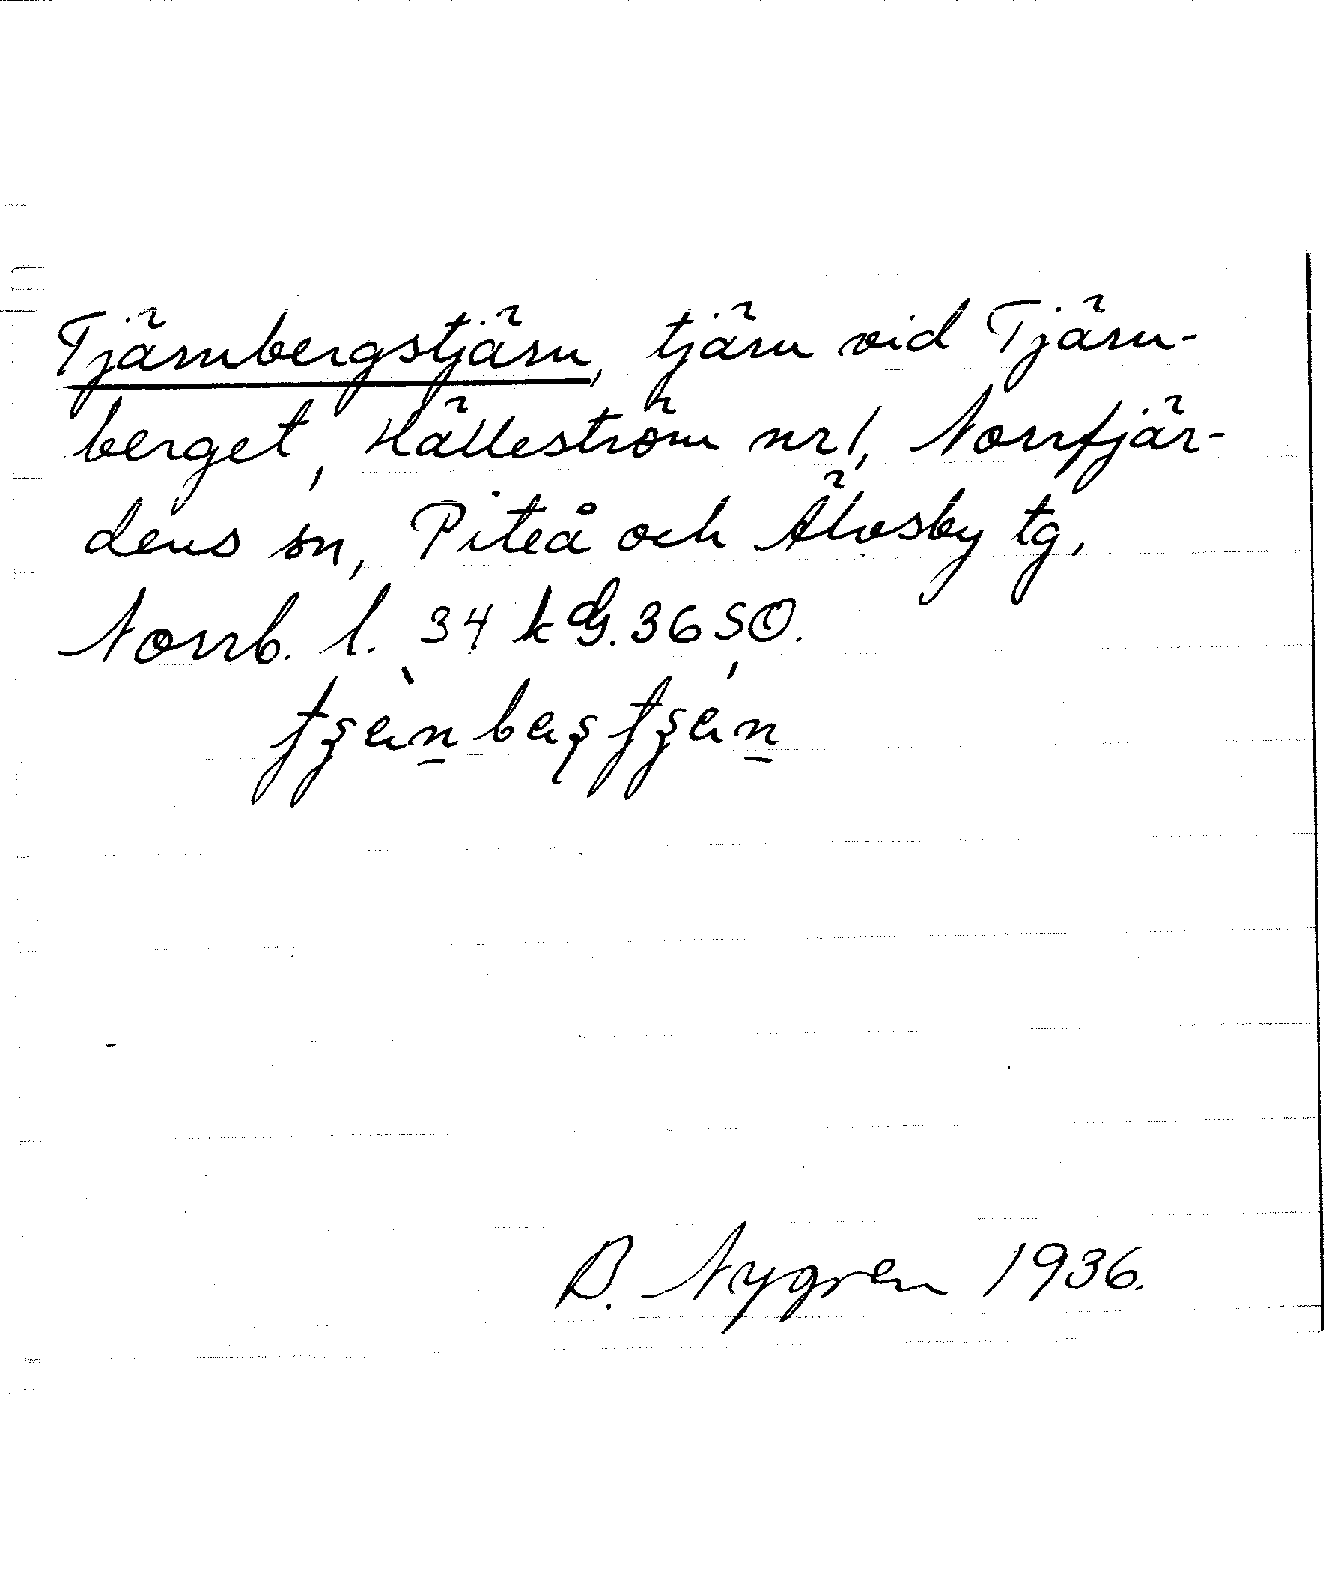 Tjärnbergstjärn, tjärn vid Tjärn-
berget, Hälleström nr 1, Norrfjär-
dens sn, Piteå och Älvsby tg,
Norrb. l. 34 k dG. 3650.
B. Nygren 1936.